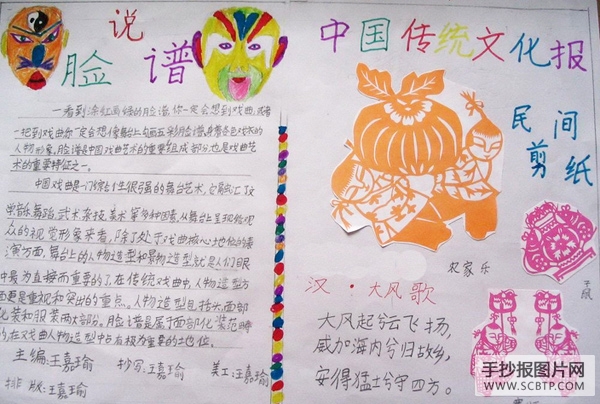 说
脸 谱
一看到浓红画绿的脸谱,你一定会想到戏曲,或者
一把到戏曲你一定会想像舞台上勾画五彩脸谱,身着各色戏衣的
人物形象。脸谱是中国戏曲艺术的重要组成部分,也是戏曲艺
术的重要特征之一。
中国戏曲是一门综合性很强的舞台艺术,它融汇了文
学、音乐、舞蹈、武术、杂技、美术等多种因素,从舞台上呈现给观
众的视觉形象来看,除了处于戏曲核心地位的表
演方面,舞台上的人物造型和景物造型就是人们眼
中最为直接而重要的了。在传统戏曲中,人物造型方
面更是重视和突出的重点。人物造型包括头面部
化装和服装两大部分。脸谱是属于面部化装范畴
的,在戏曲人物造型中占有极为重要的主地位。
主编:王嘉瑜 抄写:王嘉瑜 美工:王嘉瑜
排版:王嘉瑜
中国传统文化报
民间
剪纸
农家乐
汉·大风歌
大风起兮云飞扬,
威加海内兮归故乡,
安得猛士兮守四方。
手抄报图片网
WWW.SCBTP.COM